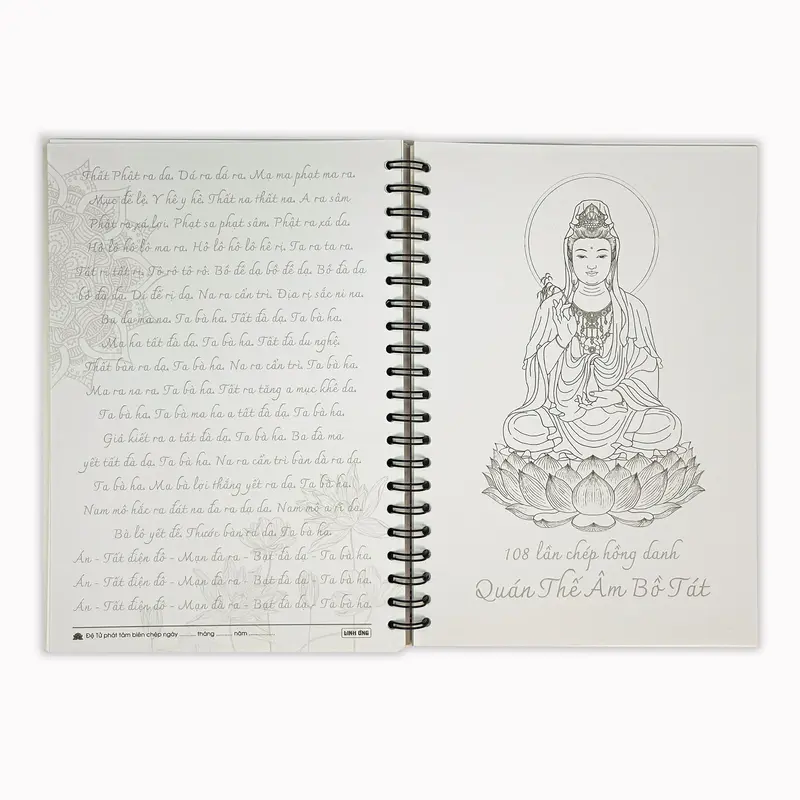 Thất Phật ra da. Dá ra dá ra. Ma ma phạt ma ra.
Mục đế lệ. Y hê y hê. Thất na thất na. A ra sâm
Phật ra xá lợi. Phạt sa phạt sâm. Phật ra xá da.
Hô lô hô lô ma ra. Hô lô hô lô hê rị. Ta ra ta ra.
Tất rị tất rị. Tô rô tô rô. Bồ đề dạ bồ đề dạ. Bồ đà dạ
bồ đà dạ. Di đế rị dạ. Na ra cẩn trì. Địa rị sắc ni na.
Ba dạ ma na. Ta bà ha. Tất đà dạ. Ta bà ha.
Ma ha tất đà dạ. Ta bà ha. Tất đà du nghệ.
Thất bàn ra dạ. Ta bà ha. Na ra cẩn trì. Ta bà ha.
Ma ra na ra. Ta bà ha. Tất ra tăng a mục khê da.
Ta bà ha. Ta bà ma ha a tất đà dạ. Ta bà ha.
Giả kiết ra a tất đà dạ. Ta bà ha. Ba đà ma
yết tất đà dạ. Ta bà ha. Na ra cẩn trì bàn đà ra dạ.
Ta bà ha. Ma bà lợi thắng yết ra dạ. Ta bà ha.
Nam mô hắc ra đát na đa ra dạ da. Nam mô a rị da.
Bà lô yết đế. Thước bàn ra dạ. Ta bà ha.
Án - Tất điện đô - Mạn đà ra - Bạt đà dạ - Ta bà ha.
Án - Tất điện đô - Mạn đà ra - Bạt đà dạ - Ta bà ha.
Án - Tất điện đô - Mạn đà ra - Bạt đà dạ - Ta bà ha.
Đệ Tử phát tâm biên chép ngày ...... tháng ...... năm ..........
LINH ỨNG
108 lần chép hồng danh
Quán Thế Âm Bồ Tát